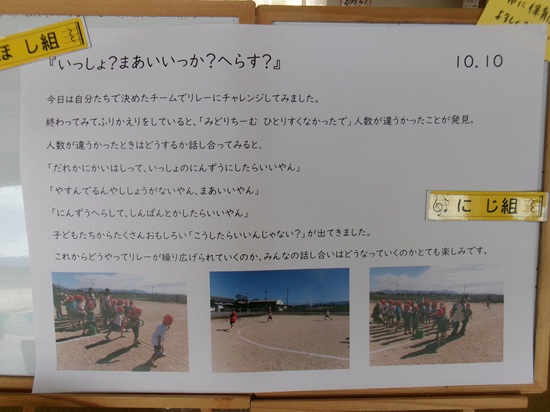 ほし組
『いっしょ?まあいいっか?へらす?』 10.10
今日は自分たちで決めたチームでリレーにチャレンジしてみました。
終わってみてふりかえりをしていると、「みどりちーむ ひとりすくなかったで」人数が違うかったことが発見。
人数が違うかったときはどうするか話し合ってみると、
「だれかにかいはしって、いっしょのにんずうにしたらいいやん」
「やすんでるんやししょうがないやん、まあいいやん」
「にんずうへらして、しんぱんとかしたらいいやん」
にじ組
子どもたちからたくさんおもしろい「こうしたらいいんじゃない?」が出てきました。
これからどうやってリレーが繰り広げられていくのか、みんなの話し合いはどうなっていくのかとても楽しみです。